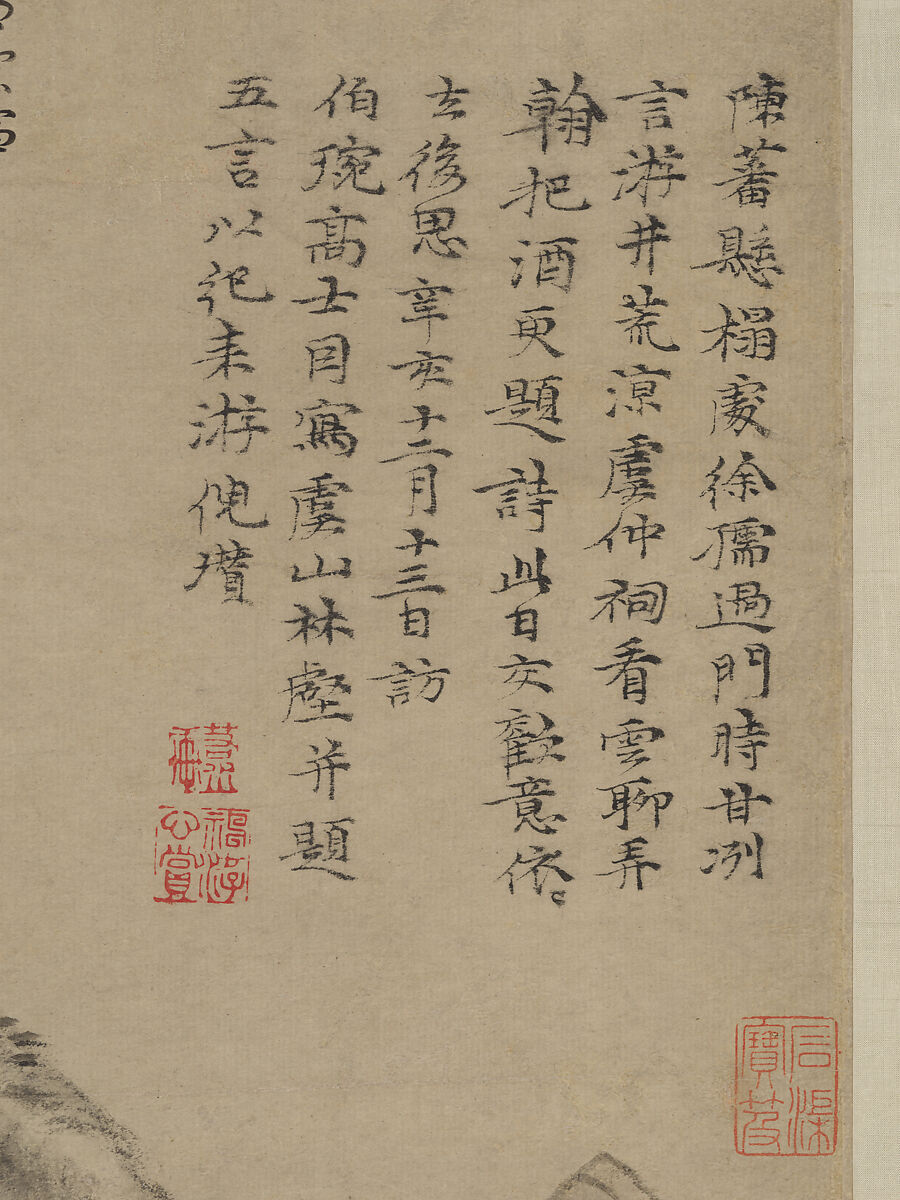 陳蕃懸榻處徐孺過門時甘冽
言游井荒涼虞仲祠看雲聊弄
翰把酒更題詩此日交歡意依〻
去後思辛亥十二月十三日訪
伯琬高士因寫虞山林壑并題
五言以紀来游倪瓚
蕉林
公賞
石渠
寶笈